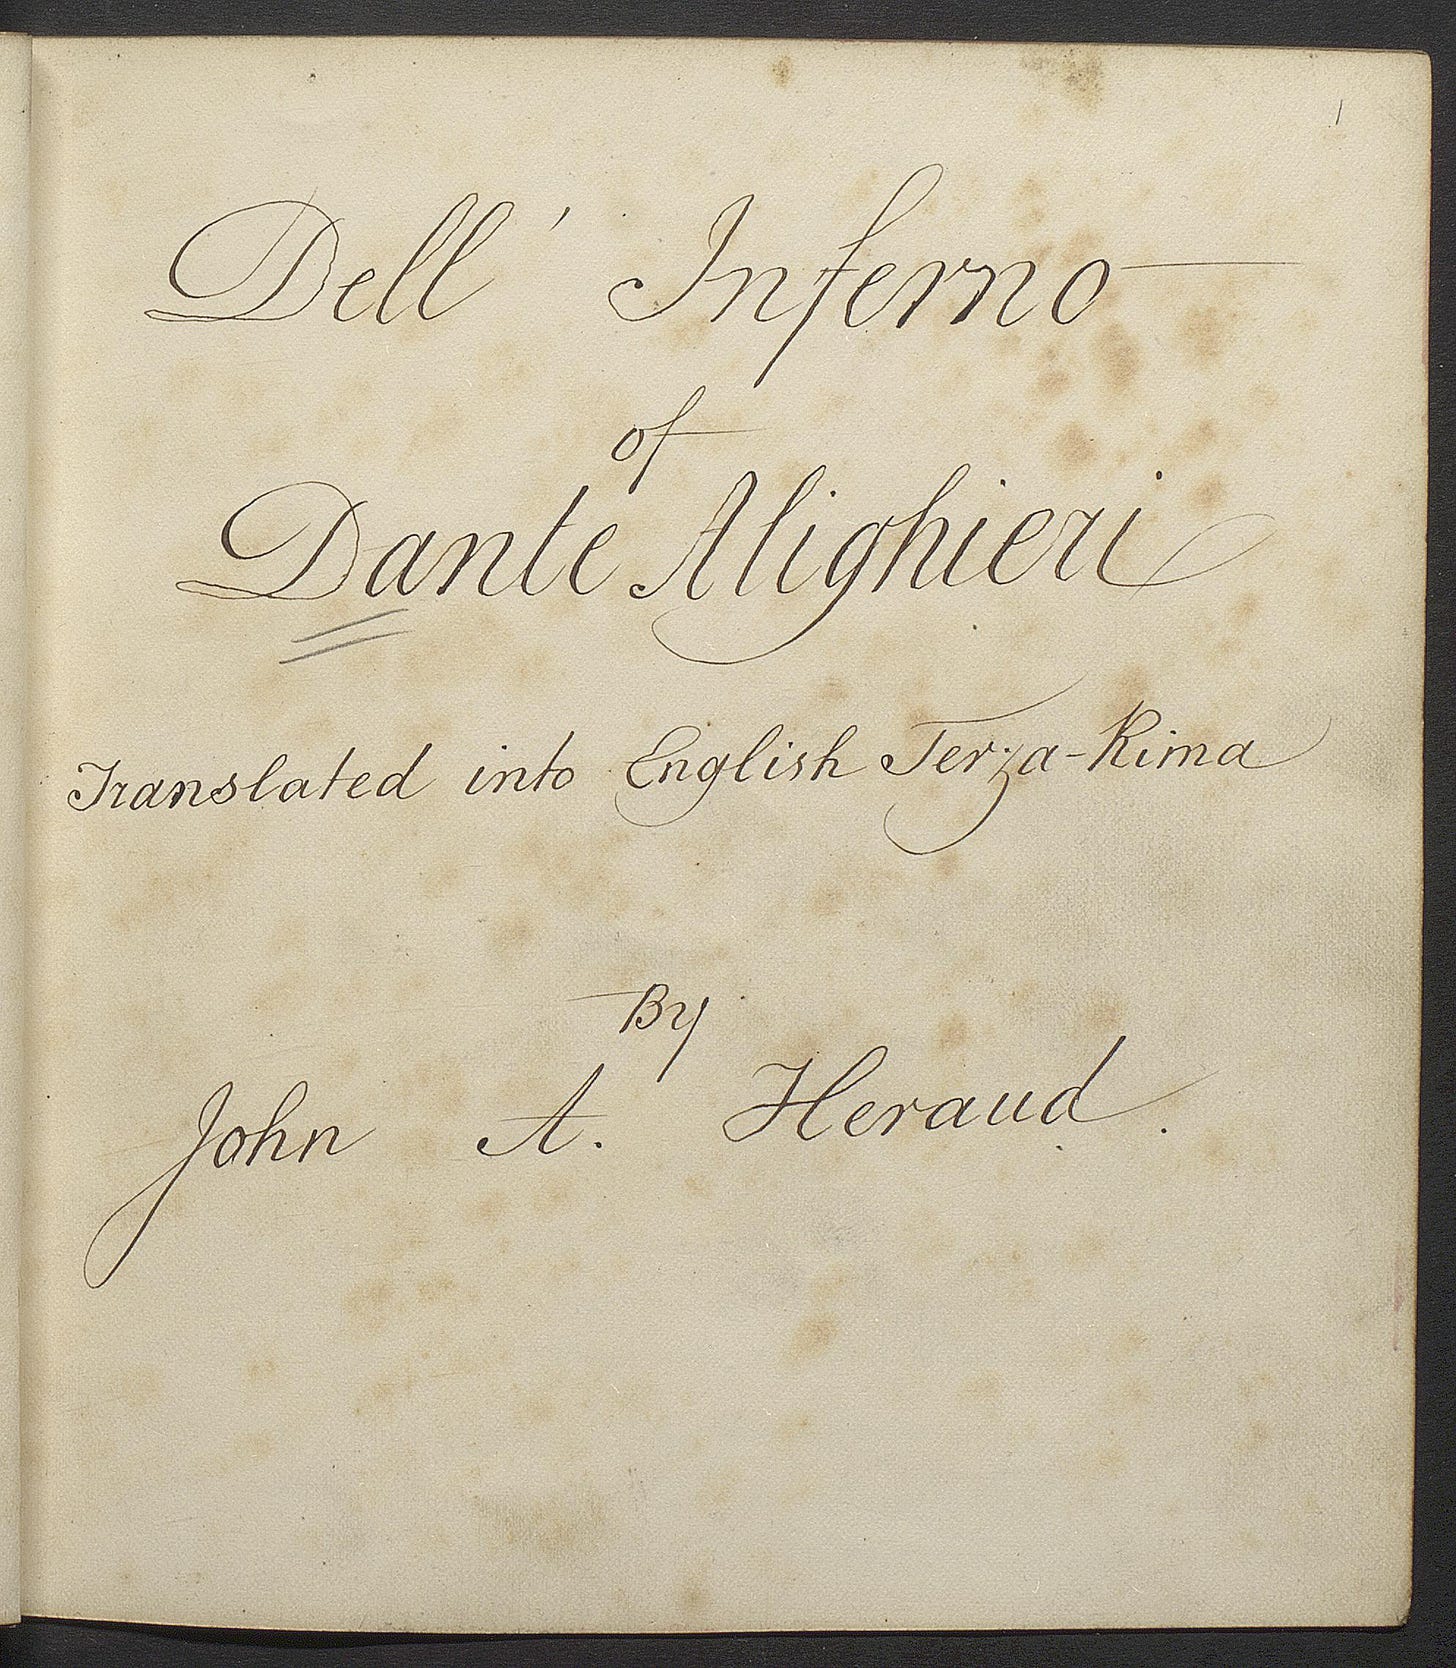 1
Dell' Inferno
of
Dante Alighieri
Translated into English Terza-Rima
By
John A. Heraud.